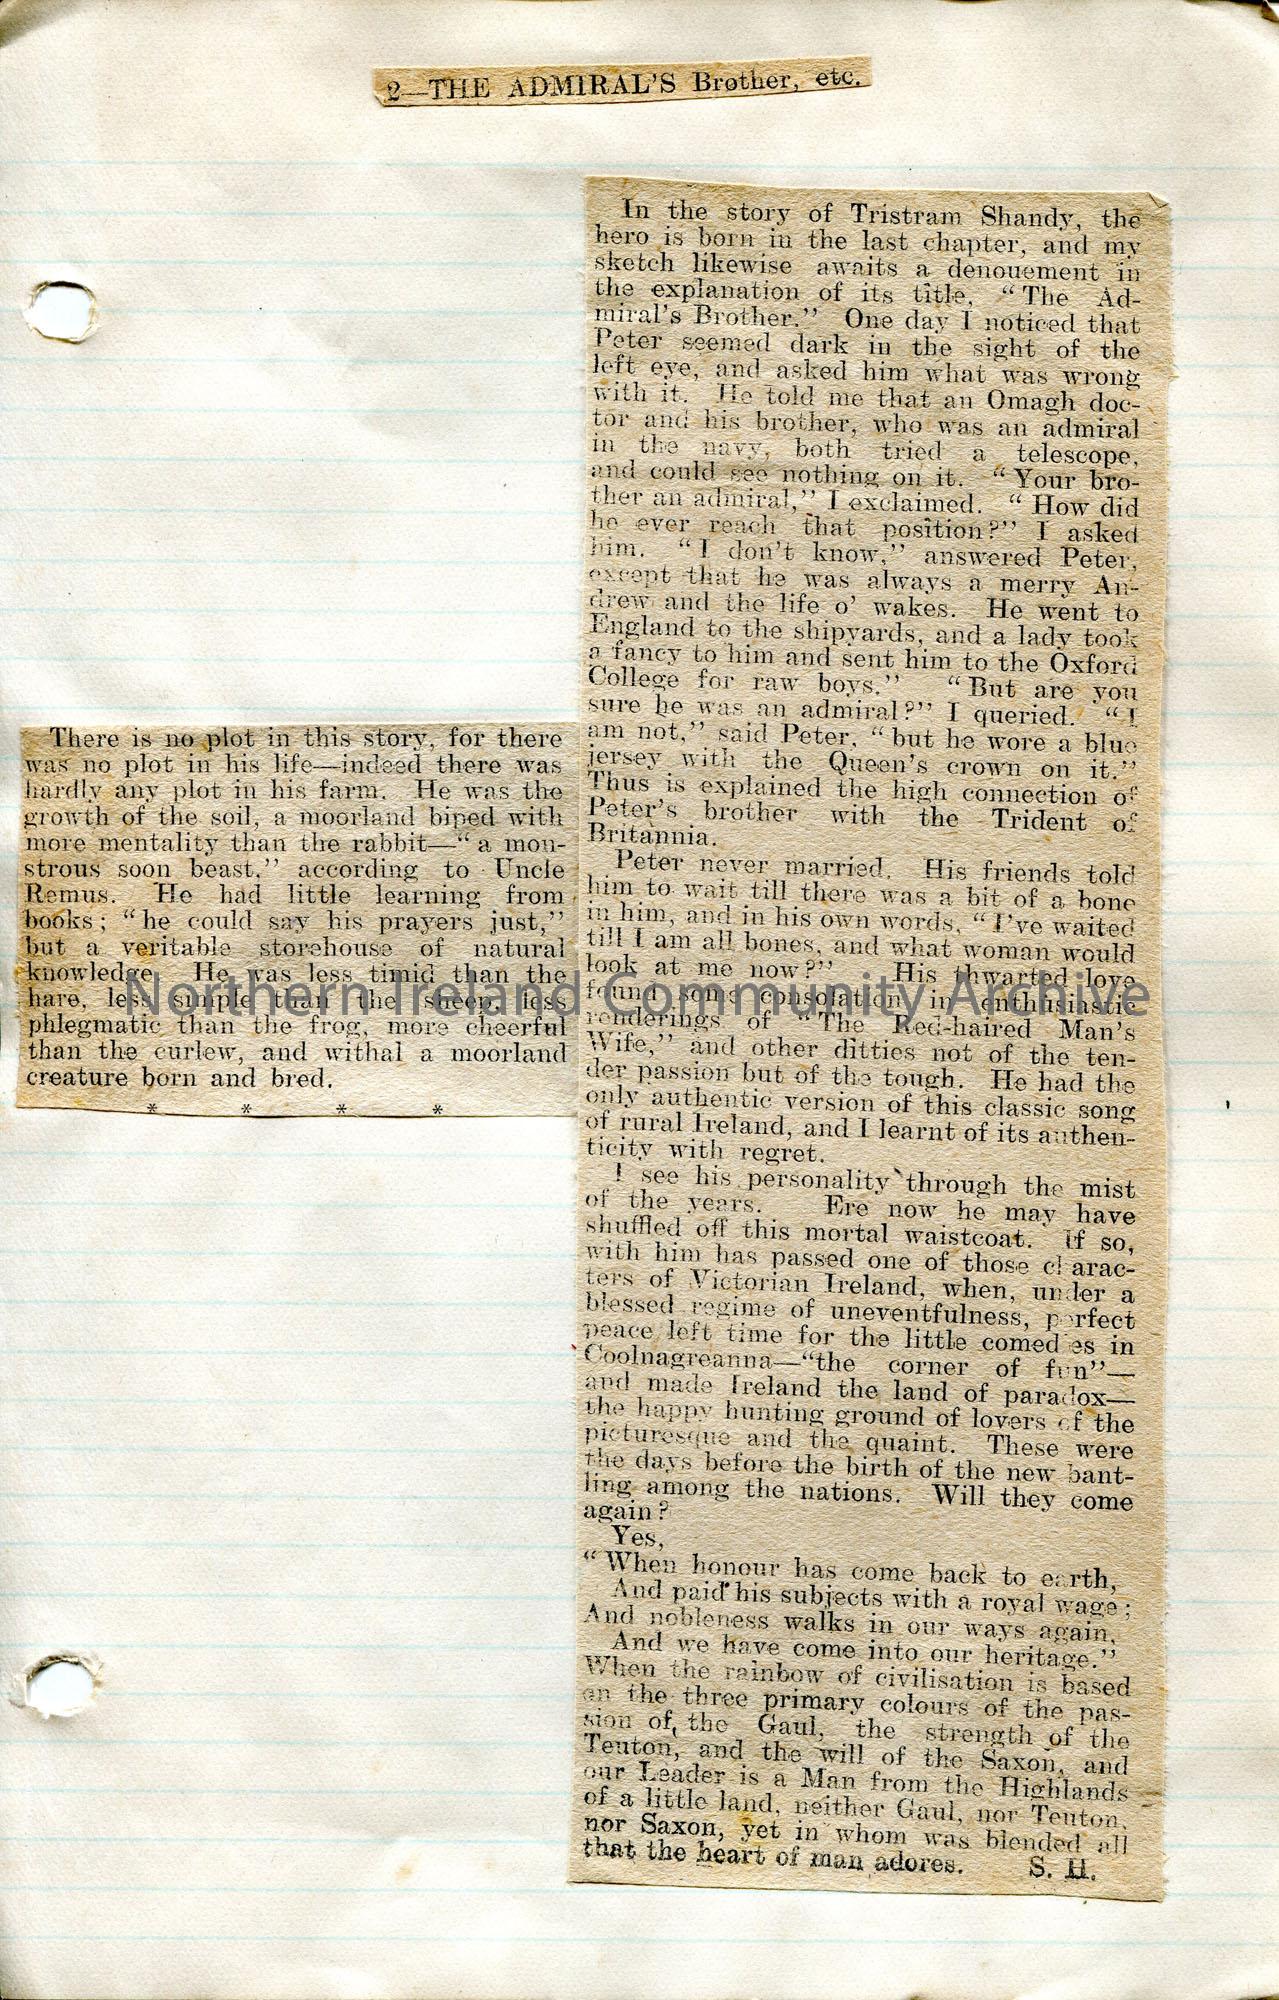 2—THE ADMIRAL'S Brother, etc.
There is no plot in this story, for there
was no plot in his life—indeed there was
hardly any plot in his farm. He was the
growth of the soil, a moorland biped with
more mentality than the rabbit—"a mon-
strous soon beast," according to Uncle
Remus. He had little learning from
books; "he could say his prayers just,"
but a veritable storehouse of natural
knowledge. He was less timid than the
hare, less simple than the sheep, less
phlegmatic than the frog, more cheerful
than the curlew, and withal a moorland
creature born and bred.
* * * *
In the story of Tristram Shandy, the
hero is born in the last chapter, and my
sketch likewise awaits a denouement in
the explanation of its title, "The Ad-
miral's Brother." One day I noticed that
Peter seemed dark in the sight of the
left eye, and asked him what was wrong
with it. He told me that an Omagh doc-
tor and his brother, who was an admiral
in the navy, both tried a telescope,
and could see nothing on it. "Your bro-
ther an admiral," I exclaimed. "How did
he ever reach that position?" I asked
him. "I don't know," answered Peter,
except that he was always a merry An-
drew and the life o' wakes. He went to
England to the shipyards, and a lady took
a fancy to him and sent him to the Oxford
College for raw boys." "But are you
sure he was an admiral?" I queried. "I
am not," said Peter, "but he wore a blue
jersey with the Queen's crown on it."
Thus is explained the high connection of
Peter's brother with the Trident of
Britannia.
Peter never married. His friends told
him to wait till there was a bit of a bone
in him, and in his own words, "I've waited
till I am all bones, and what woman would
look at me now?" His thwarted love
found some consolation in enthusiastic
renderings of "The Red-haired Man's
Wife," and other ditties not of the ten-
der passion but of the tough. He had the
only authentic version of this classic song
of rural Ireland, and I learnt of its authen-
ticity with regret.
I see his personality through the mist
of the years. Ere now he may have
shuffled off this mortal waistcoat. If so,
with him has passed one of those charac-
ters of Victorian Ireland, when, under a
blessed regime of uneventfulness, perfect
peace left time for the little comedies in
Coolnagreanna—"the corner of fun"—
and made Ireland the land of paradox—
the happy hunting ground of lovers of the
picturesque and the quaint. These were
the days before the birth of the new bant-
ling among the nations. Will they come
again?
Yes,
"When honour has come back to earth,
And paid his subjects with a royal wage;
And nobleness walks in our ways again,
And we have come into our heritage."
When the rainbow of civilisation is based
on the three primary colours of the pas-
sion of the Gaul, the strength of the
Teuton, and the will of the Saxon, and
our Leader is a Man from the Highlands
of a little land, neither Gaul, nor Teuton,
nor Saxon, yet in whom was blended all
that the heart of man adores. S. H.
Northern Ireland Community Archive